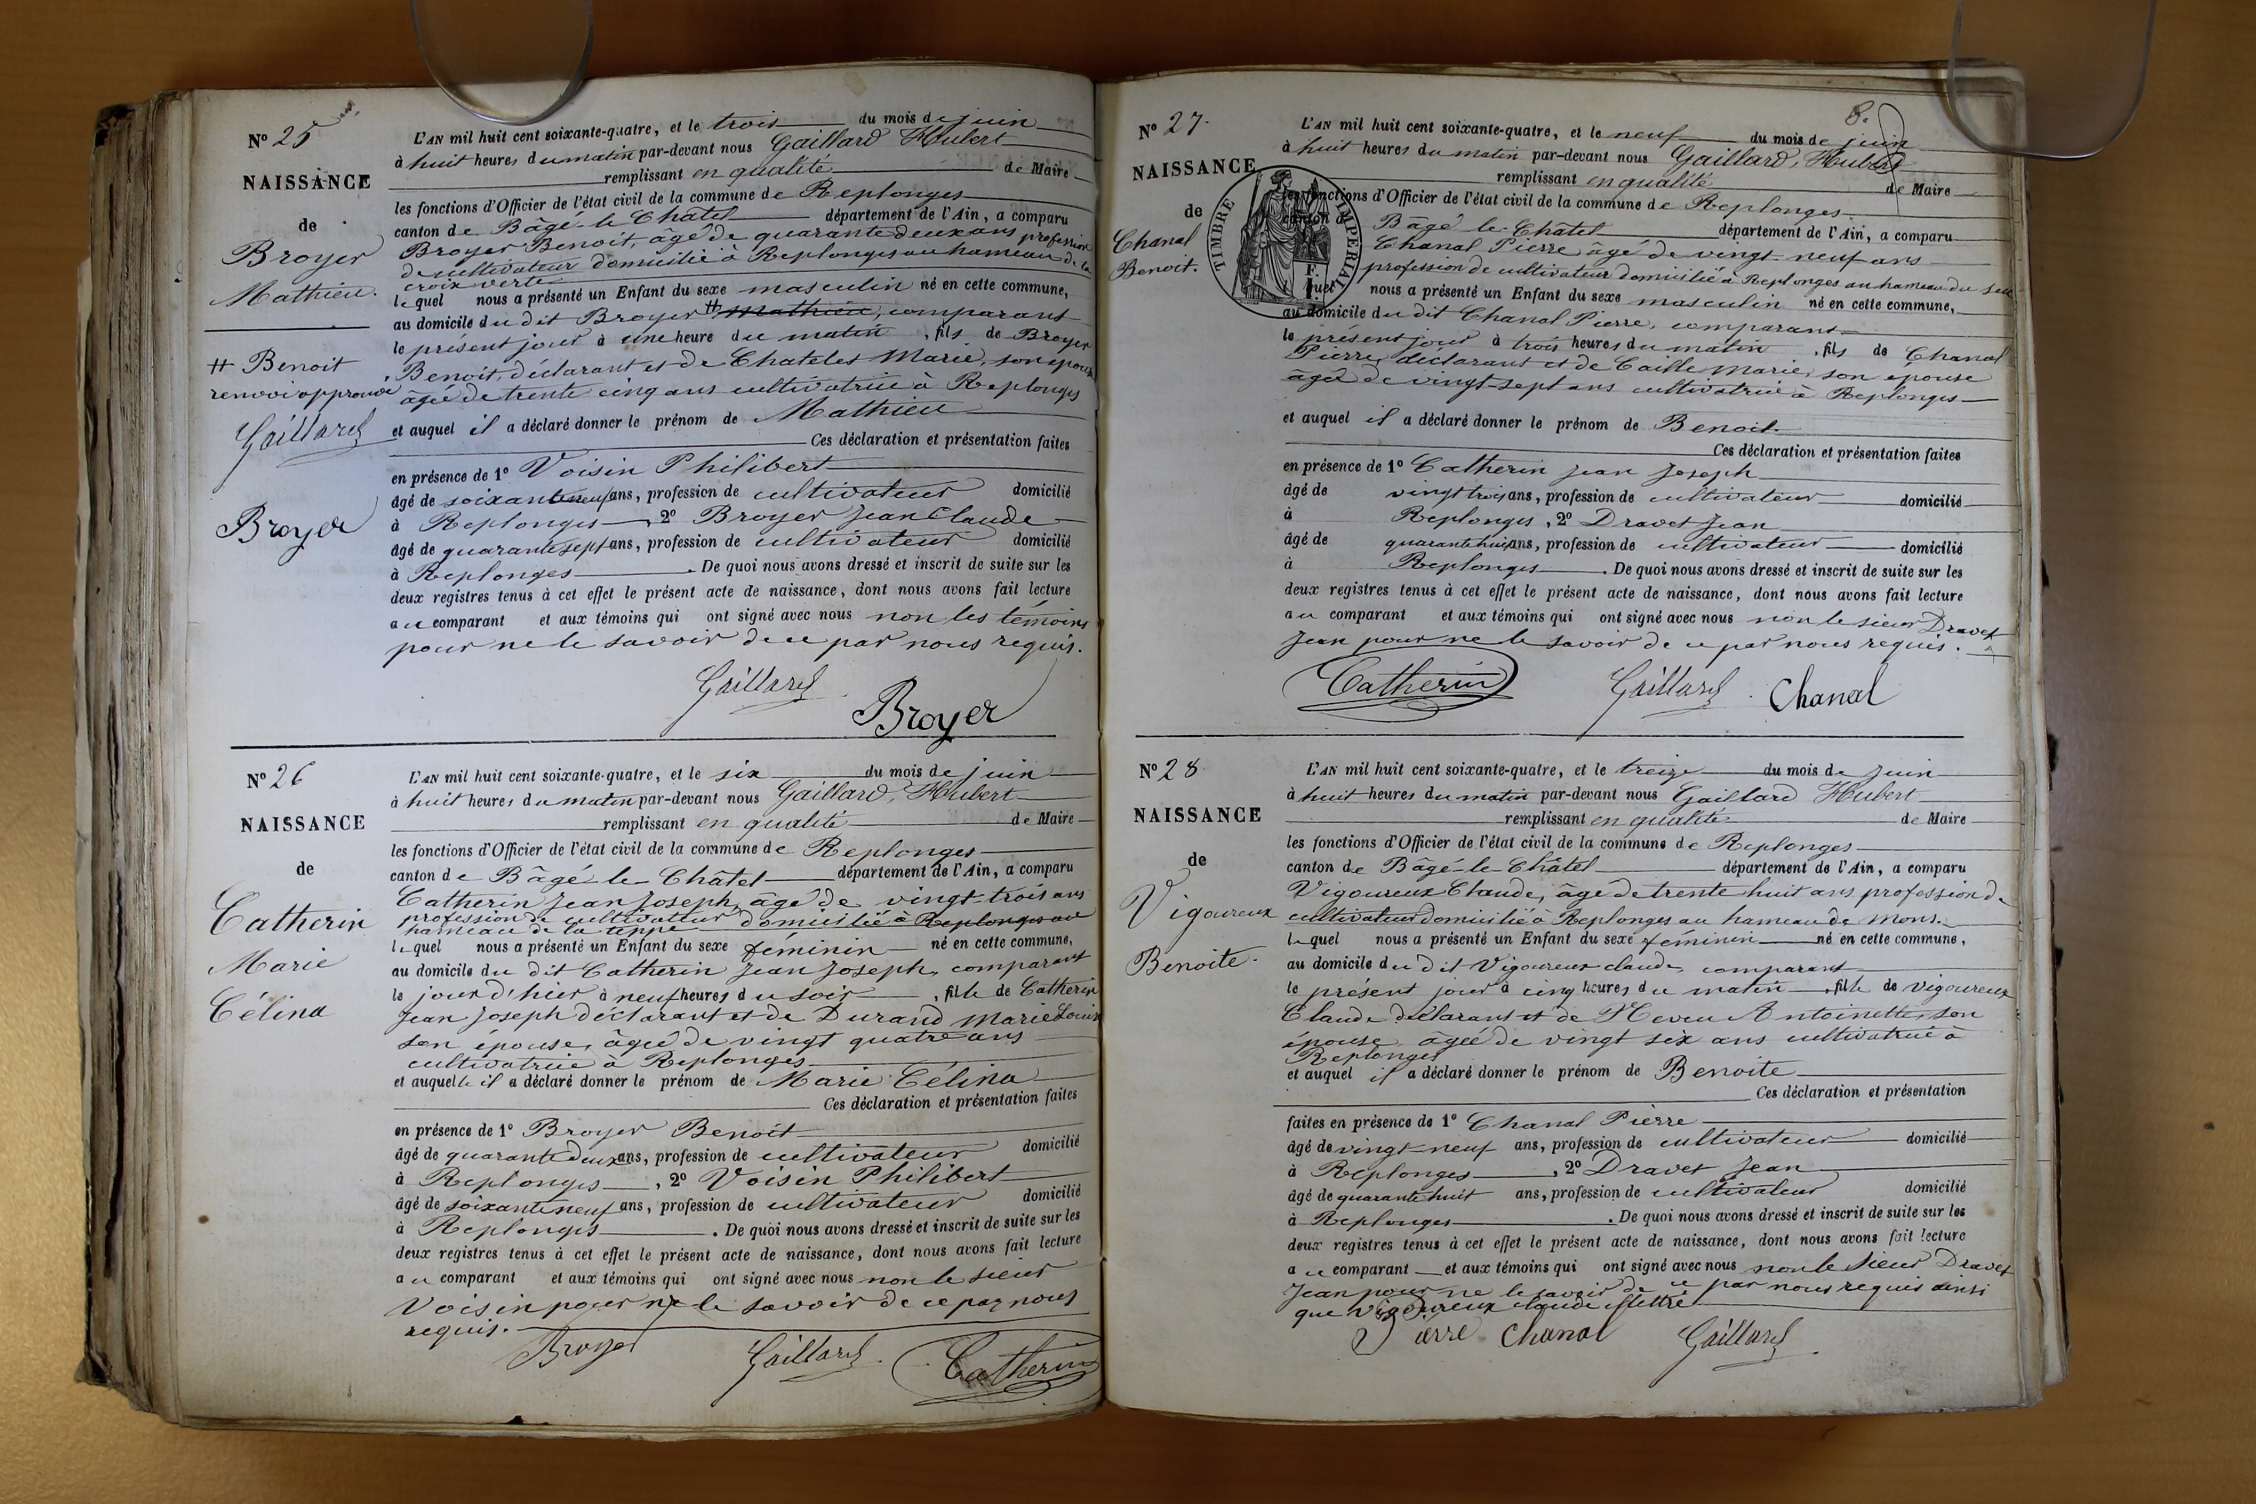 N° 25
NAISSANCE
de
Broyer
Mathieu.
# Benoit
renvoi approuvé
Gaillard
Broyer
L'AN mil huit cent soixante-quatre, et le trois du mois de juin
à huit heures du matin par-devant nous Gaillard Hubert
remplissant en qualité de Maire
les fonctions d'Officier de l'état civil de la commune de Replonges
canton de Bâgé-le Châtel département de l'Ain, a comparu
Broyer Benoit, âgé de quarante deux ans profession
de cultivateur domicilié à Replonges au hameau de la
croix verte
lequel nous a présenté un Enfant du sexe masculin né en cette commune,
au domicile du dit Broyer # Mathieu, comparant
le présent jour à une heure du matin, fils de Broyer
Benoit, déclarant et de Chatelet Marie, son épouse
âgée de trente cinq ans cultivatrice à Replonges
et auquel il a déclaré donner le prénom de Mathieu
Ces déclaration et présentation faites
en présence de 1° Voisin Philibert
âgé de soixante neuf ans, profession de cultivateur domicilié
à Replonges, 2° Broyer Jean Claude
âgé de quarante sept ans, profession de cultivateur domicilié
à Replonges. De quoi nous avons dressé et inscrit de suite sur les
deux registres tenus à cet effet le présent acte de naissance, dont nous avons fait lecture
au comparant et aux témoins qui ont signé avec nous non les témoins
pour ne le savoir de ce par nous requis.
Gaillard
Broyer
N° 26
NAISSANCE
de
Catherin
Marie
Célina
L'AN mil huit cent soixante-quatre, et le six du mois de juin
à huit heures du matin par-devant nous Gaillard, Hubert
remplissant en qualité de Maire
les fonctions d'Officier de l'état civil de la commune de Replonges
canton de Bâgé-le-Châtel département de l'Ain, a comparu
Catherin Jean Joseph, âgé de vingt-trois ans
profession de cultivateur domicilié à Replonges au
hameau de la teppe
lequel nous a présenté un Enfant du sexe féminin né en cette commune,
au domicile du dit Catherin Jean Joseph, comparant
le jour d'hier à neuf heures du soir, fille de Catherin
Jean Joseph déclarant et de Durand Marie Louise
son épouse, âgée de vingt quatre ans
cultivatrice à Replonges
et auquelle il a déclaré donner le prénom de Marie Célina
Ces déclaration et présentation faites
en présence de 1° Broyer Benoit
âgé de quarante deux ans, profession de cultivateur domicilié
à Replonges, 2° Voisin Philibert
âgé de soixante neuf ans, profession de cultivateur domicilié
à Replonges. De quoi nous avons dressé et inscrit de suite sur les
deux registres tenus à cet effet le présent acte de naissance, dont nous avons fait lecture
au comparant et aux témoins qui ont signé avec nous non le sieur
Voisin pour ne le savoir de ce par nous
requis.
Broyer Gaillard Catherin
8.
N° 27.
NAISSANCE
de
Chanal
Benoit.
TIMBRE IMPERIAL
L'AN mil huit cent soixante-quatre, et le neuf du mois de juin
à huit heures du matin par-devant nous Gaillard, Hubert
remplissant en qualité de Maire
les fonctions d'Officier de l'état civil de la commune de Replonges
canton de Bâgé-le-Châtel département de l'Ain, a comparu
Chanal Pierre âgé de vingt-neuf ans
profession de cultivateur domicilié à Replonges au hameau du
lequel nous a présenté un Enfant du sexe masculin né en cette commune,
au domicile du dit Chanal Pierre, comparant
le présent jour à trois heures du matin, fils de Chanal
Pierre, déclarant et de Caille Marie, son épouse
âgée de vingt-sept ans cultivatrice à Replonges
et auquel il a déclaré donner le prénom de Benoit.
Ces déclaration et présentation faites
en présence de 1° Catherin Jean Joseph
âgé de vingt trois ans, profession de cultivateur domicilié
à Replonges, 2° Dravet Jean
âgé de quarante huit ans, profession de cultivateur domicilié
à Replonges. De quoi nous avons dressé et inscrit de suite sur les
deux registres tenus à cet effet le présent acte de naissance, dont nous avons fait lecture
au comparant et aux témoins qui ont signé avec nous non le sieur Dravet
Jean pour ne le savoir de ce par nous requis.
Catherin Gaillard Chanal
N° 28
NAISSANCE
de
Vigoureux
Benoite.
L'AN mil huit cent soixante-quatre, et le treize du mois de Juin
à huit heures du matin par-devant nous Gaillard Hubert
remplissant en qualité de Maire
les fonctions d'Officier de l'état civil de la commune de Replonges
canton de Bâgé-le-Châtel département de l'Ain, a comparu
Vigoureux Claude, âgé de trente huit ans profession de
cultivateur domicilié à Replonges au hameau de Mons.
lequel nous a présenté un Enfant du sexe féminin né en cette commune,
au domicile du dit Vigoureux claude, comparant
le présent jour à cinq heures du matin, fille de Vigoureux
Claude déclarant et de Neveu Antoinette, son
épouse, âgée de vingt six ans cultivatrice à
Replonges
et auquel il a déclaré donner le prénom de Benoite
Ces déclaration et présentation
faites en présence de 1° Chanal Pierre
âgé de vingt-neuf ans, profession de cultivateur domicilié
à Replonges, 2° Dravet Jean
âgé de quarante huit ans, profession de cultivateur domicilié
à Replonges. De quoi nous avons dressé et inscrit de suite sur les
deux registres tenus à cet effet le présent acte de naissance, dont nous avons fait lecture
au comparant et aux témoins qui ont signé avec nous non le sieur Dravet
Jean pour ne le savoir de ce par nous requis ainsi
que Vigoureux claude illettré
Pierre Chanal Gaillard